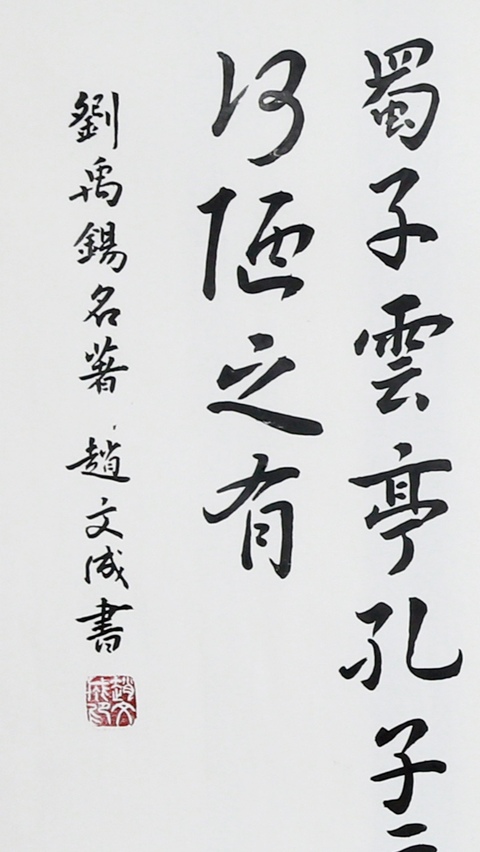 蜀子雲亭孔子
何陋之有
劉禹錫名著 趙文成書
趙文成印